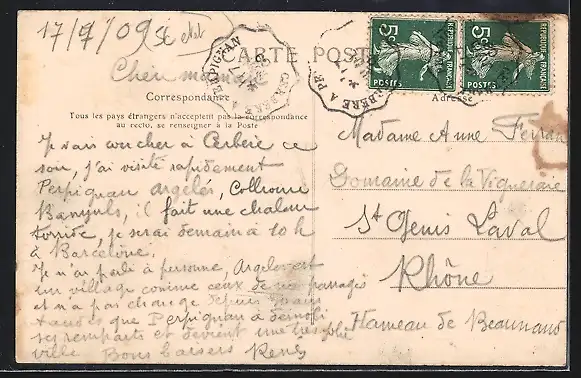 17/7/09
CARTE POSTALE
Chère maman
Correspondance
Tous les pays étrangers n'acceptent pas la correspondance
au recto, se renseigner à la Poste
Adresse
CERBÈRE A PERPIGNAN
5c REPUBLIQUE FRANÇAISE POSTES
5c REPUBLIQUE FRANÇAISE POSTES
Je vais coucher à Cerbère ce
soir, j'ai visité rapidement
Perpignan Argelès, Collioure
Banyuls, il fait une chaleur
torride, je serai demain à 10 h
à Barcelone.
Je n'ai parlé à personne, Argelès est
un village comme ceux de nos parages
et n'a pas changé depuis
tandis que Perpignan a démoli
ses remparts et devient une très jolie
ville Bons baisers René
Madame Anne Ferran
Domaine de la Vigneraie
St Genis Laval
Rhône
Hameau de Beaunand